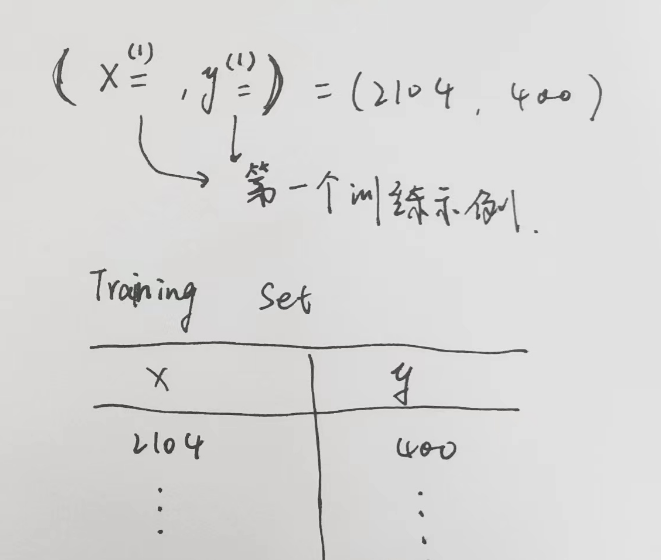 (x⁽¹⁾, y⁽¹⁾) = (2104, 400)
第一个训练示例.
Training Set
x y
2104 400
⋮ ⋮